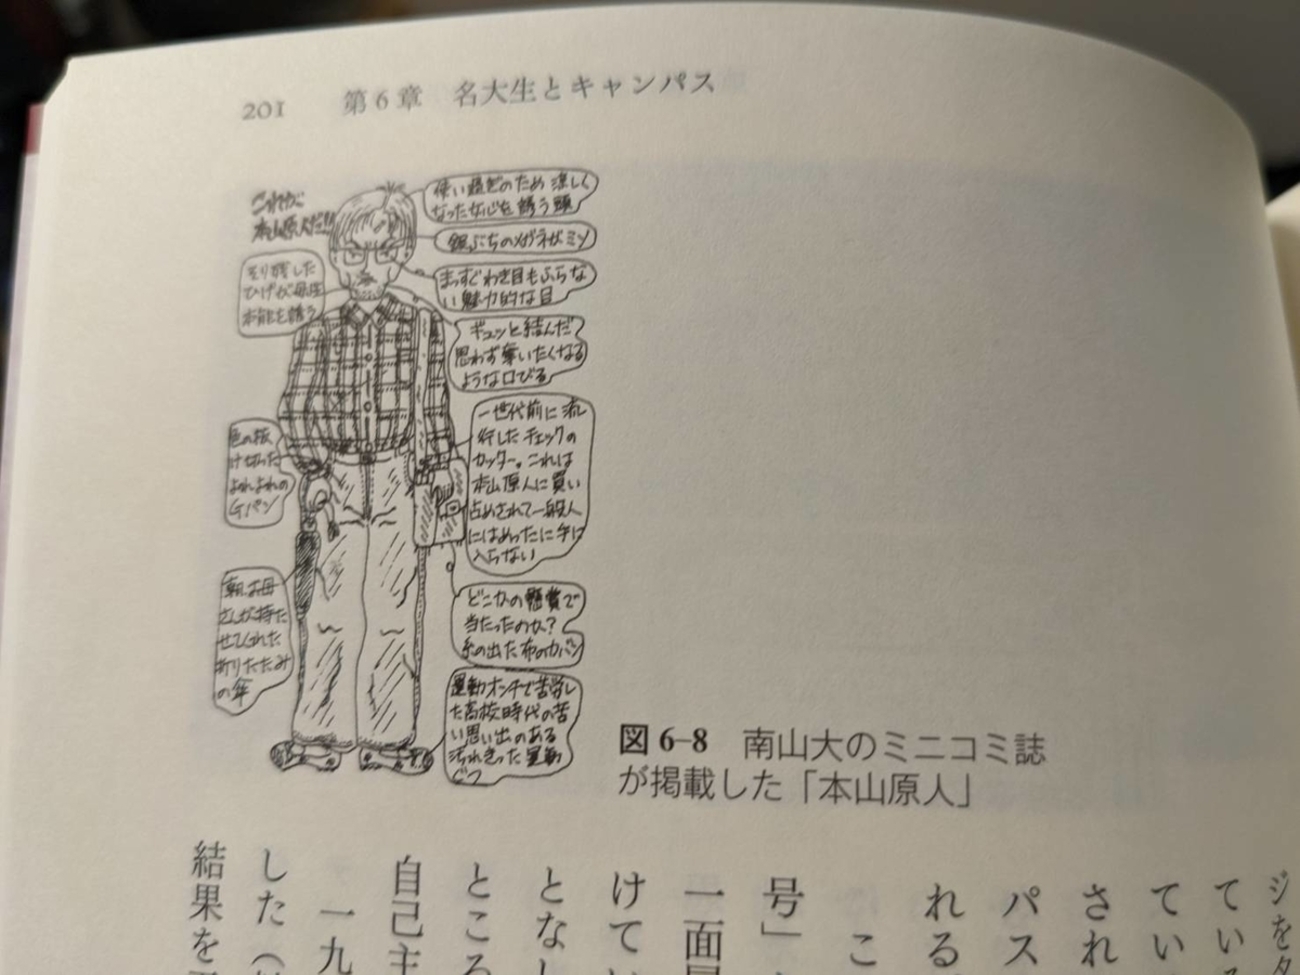 201 第6章 名大生とキャンパス
これが
本山原人だ!!
使い過ぎのため涼しく
なった女心を誘う頭
銀ぶちのメガネがミソ
まっすぐわき目もふらな
い魅力的な目
そり残した
ひげが母性
本能を誘う
ギュッと結んだ
思わず奪いたくなる
ような口びる
一世代前に流
行したチェックの
カッター。これは
本山原人に買い
占めされて一般人
にはめったに手に
入らない
色の抜
け切った
よれよれの
Gパン
朝は母
さんが持た
せてくれた
折りたたみ
の傘
どこかの懸賞で
当たったのか?
糸の出た布のカバン
運動オンチで苦労し
た高校時代の苦
い思い出のある
汚れきった運動
ぐつ
図6-8 南山大のミニコミ誌
が掲載した「本山原人」
ジをタ
ている
てい
され
パス
れる
こ
号」
一面
けてい
とな
ところ
自己主
一九
した(
結果を